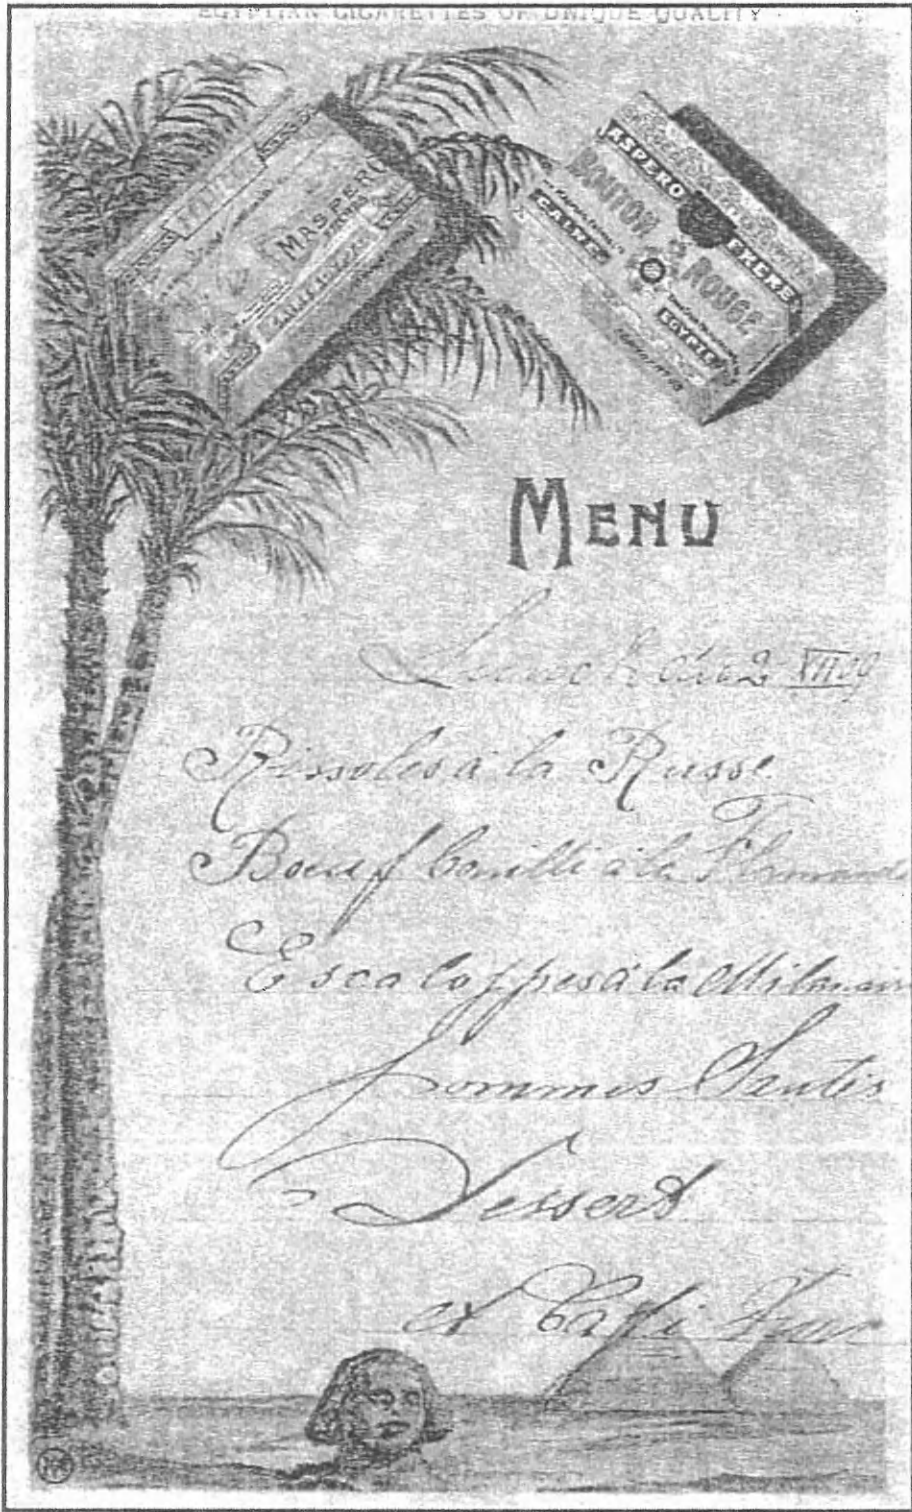 EGYPTIAN CIGARETTES OF UNIQUE QUALITY
MASPERO
FRERES
MASPERO FRERES
BOUTON ROUGE
CAIRE
EGYPTE
MENU
Lunch du 2 VII 09
Rissoles à la Russe
Boeuf bouilli à la Flamande
Escaloppes à la Milanais
Pommes Sautés
Dessert
et Café Turc